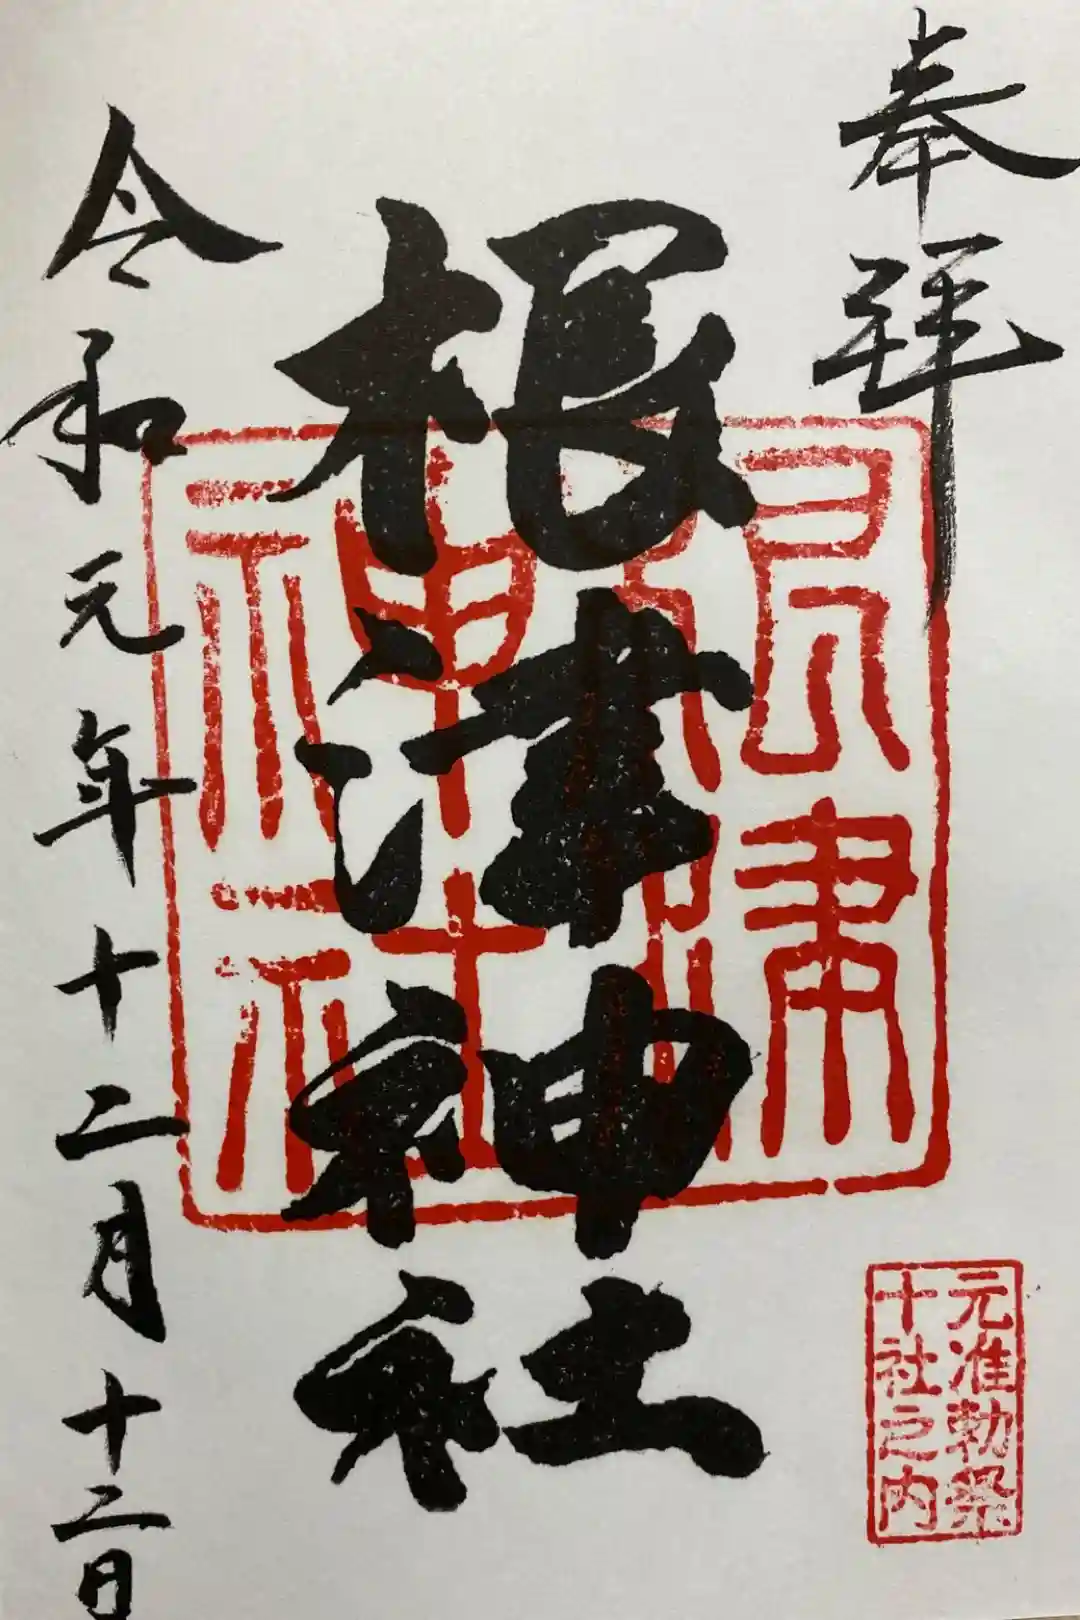 奉拝
根津神社
令和元年十二月十二日
根津
神社
元准勅祭
十社之内